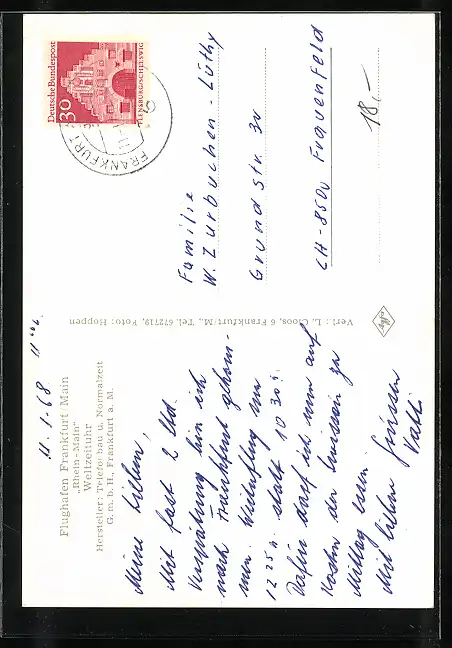 Flughafen Frankfurt/Main
„Rhein-Main“
Weltzeituhr
Hersteller: Telefonbau u. Normalzeit
G. m. b. H. Frankfurt a. M.
11.1.68 11
Meine Lieben,
Mit fast 2 Std.
Verspätung bin ich
nach Frankfurt gekom-
men. Weiterflug um
12 25 h. statt 10 30 h.
Dafür darf ich nun auf
Kosten der Swissair zu
Mittag essen
Mit lieben Grüssen
Valti
Verl.: L. Cloos, 6 Frankfurt/M., Tel. 672719, Foto: Hoppen
Agfa
Deutsche Bundespost
30
FLENSBURG/SCHLESWIG
FRANKFURT
Familie
W. Zurbuchen-Lüthy
Grundstr. 30
CH-8500 Frauenfeld
18,-